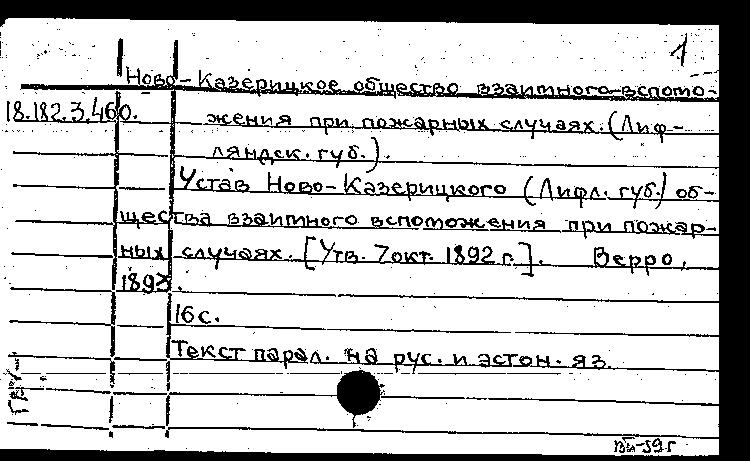 1
Ново-Казерицкое общество взаимного вспомо-
18.182.3.460.
жения при пожарных случаях. (Лиф-
ляндск. губ.).
Устав Ново-Казерицкого (Лифл. губ.) об-
щества взаимного вспоможения при пожар-
ных случаях. [Утв. 7 окт. 1892 г.]. Верро,
1893.
16 с.
Текст парал. на рус. и эстон. яз.